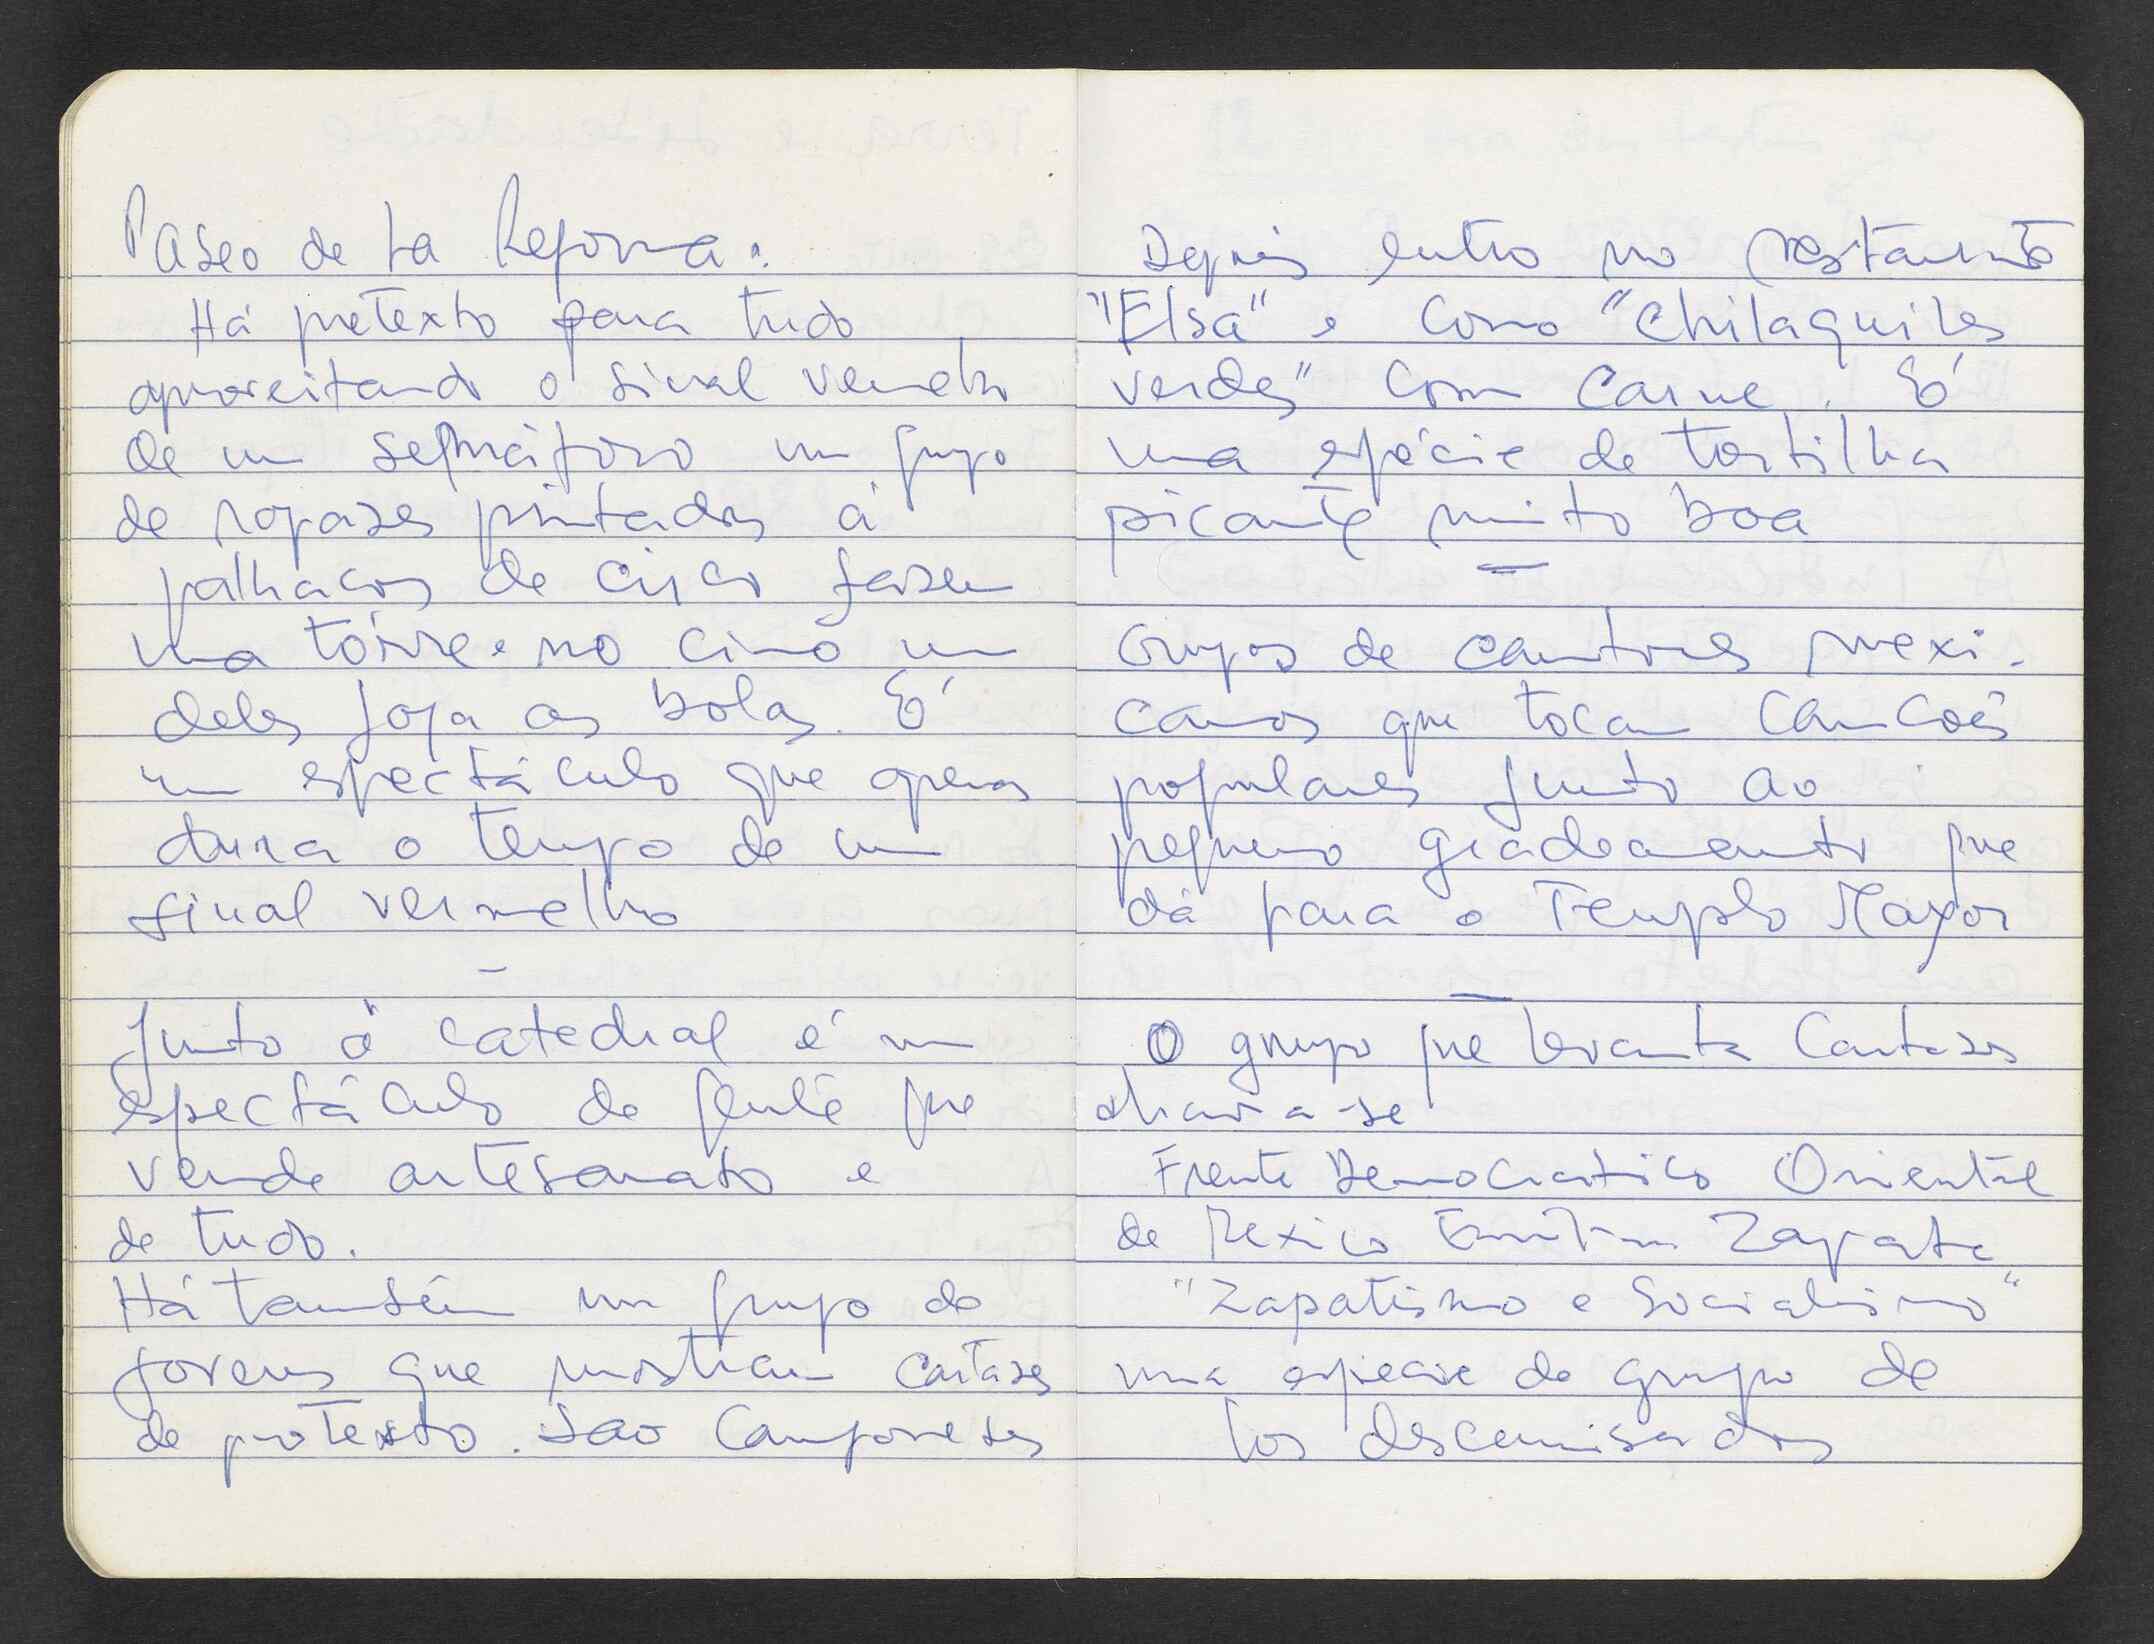 Paseo de La Reforma.
Há pretexto para tudo
aproveitando o sinal vermelho
de um semáforo um grupo
de rapazes pintados à
palhaços de circo fazem
uma tôrre e no cimo um
deles joga as bolas. É
um espectáculo que apenas
dura o tempo de um
sinal vermelho
—
Junto à catedral é um
espectáculo de gente que
vende artesanato e
de tudo.
Há também um grupo de
jovens que mostram cartazes
de protexto. São Camponeses
Depois entro no restaurante
"Elsa" e como "Chilaquiles
verdes" com carne. É
uma espécie de tortilha
picante muito boa
—
Grupos de cantores mexi-
canos que tocam canções
populares junto ao
pequeno gradeamento que
dá para o Templo Mayor
—
O grupo que levanta cartazes
chama-se
Frente Democratico Oriental
de Mexico Emiliano Zapata
"Zapatismo e Socialismo"
uma especie de grupo de
los descamisados